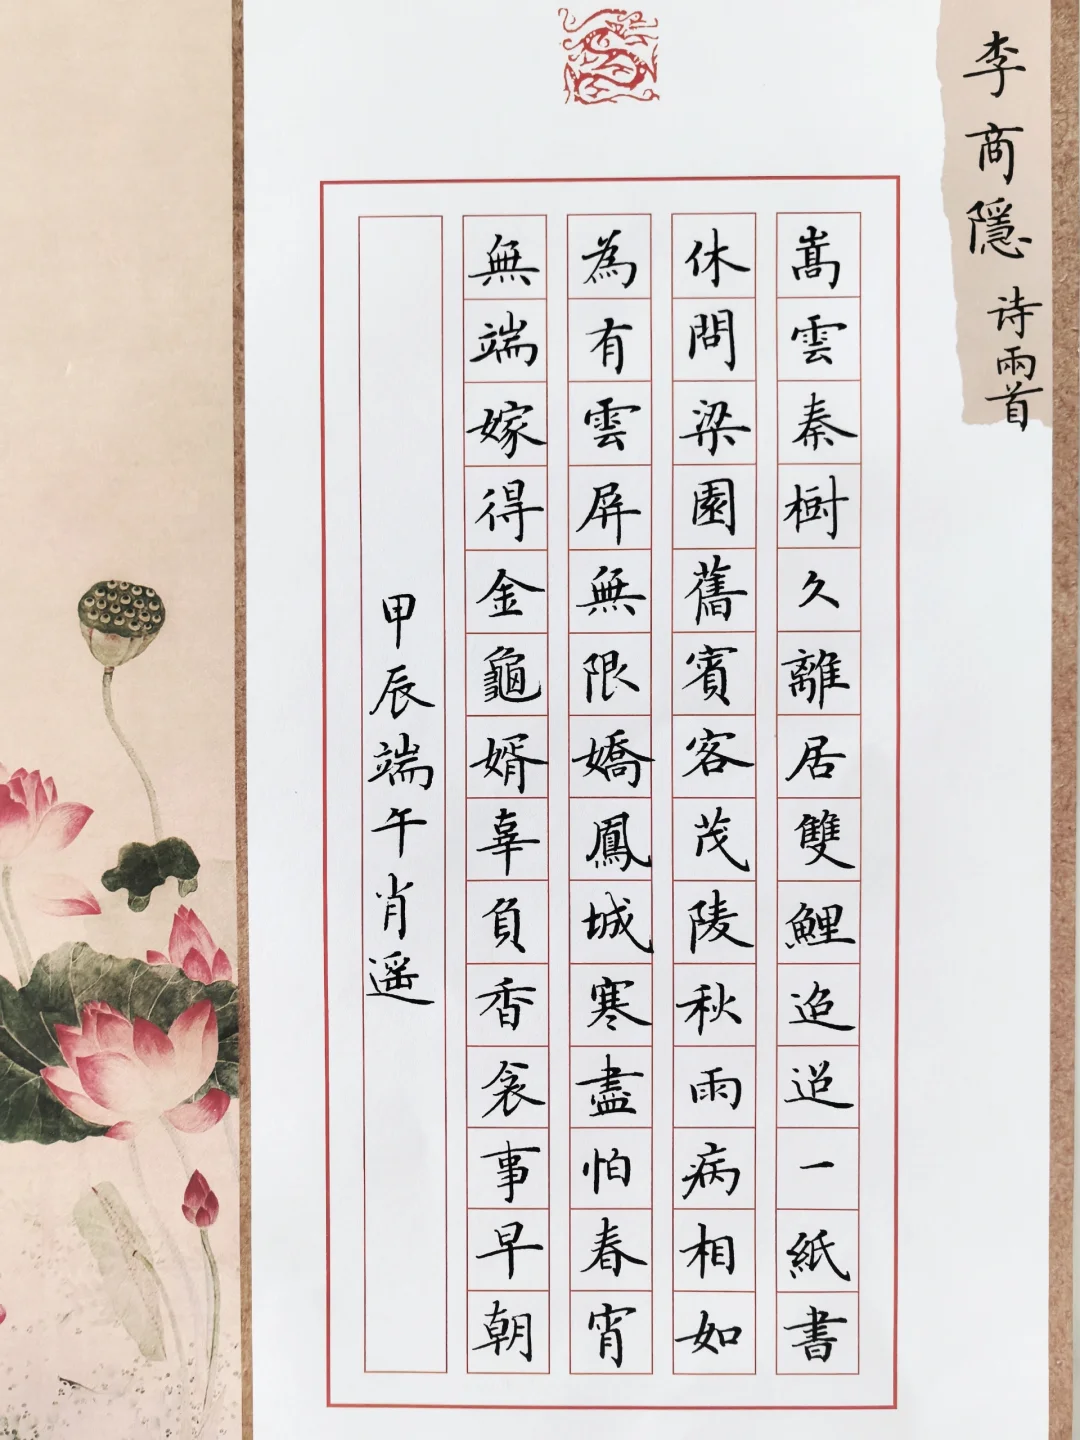 李商隱诗兩首
嵩雲秦樹久離居雙鯉迢迢一紙書
休問梁園舊賓客茂陵秋雨病相如
為有雲屏無限嬌鳳城寒盡怕春宵
無端嫁得金龜婿辜負香衾事早朝
甲辰端午肖遥